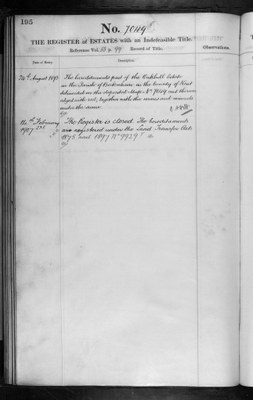 195
No. 704
THE REGISTER of ESTATES with an Indefeasible Title.
Reference Vol. 53 p. 99 Record of Title.
Observation.
Date of Entry.
Description.
24th August 1897
The hereditaments part of the Estate
in the Parish of Beckenham in the County of Kent
delineated on the deposited Map No. 704 and thereon
edged with red, together with the mines and minerals
under the same.
February
1907
The Register is closed. The hereditaments
are registered under the Land Transfer Acts
1875 and 1897 No. 99297